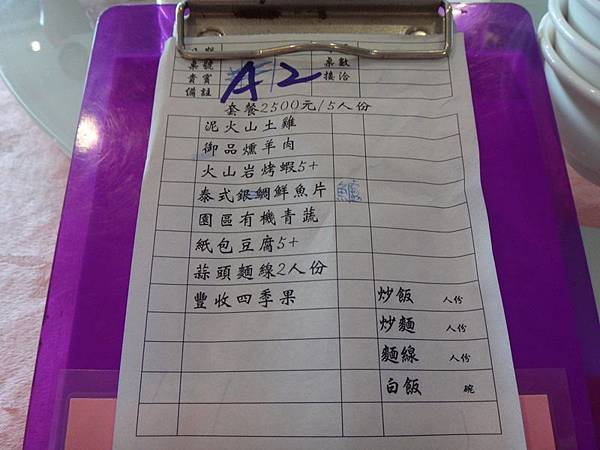 桌號 桌數
貴賓 接洽
備註
A2
套餐2500元/5人份
泥火山土雞
御品燻羊肉
火山岩烤蝦5+
泰式銀鯛鮮魚片
園區有機青蔬
紙包豆腐5+
蒜頭麵線2人份
豐收四季果 炒飯 人份
炒麵 人份
麵線 人份
白飯 碗